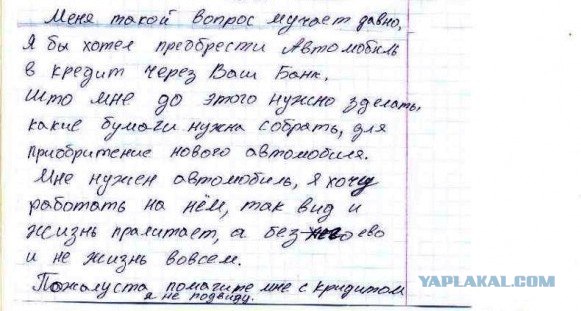 Меня такой вопрос мучает давно,
Я бы хотел преобрести Автомобиль
в кредит через Ваш Банк.
што мне до этого нужно зделать,
какие бумаги нужна собрать, для
приобритение нового автомобиля.
Мне нужен автомобиль, я хочу
работать на нём, так вид и
жизнь пралитает, а без него ево
и не жизнь вовсем.
Пожалуста помагите мне с кридитом
я не подвиду.
YAPLAKAL.COM